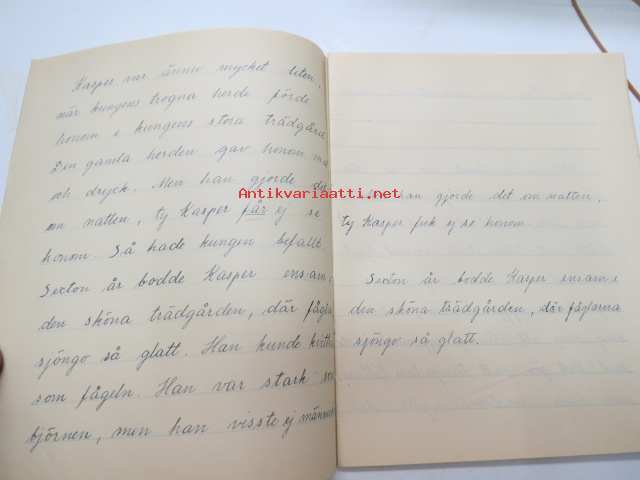 Kasper var ännu mycket liten,
när kungens trogna herde förde
honom i kungens stora trädgård
Den gamla herden gav honom ma
och dryck. Men han gjorde de
om natten, ty Kasper får ej se
honom. Så hade kungen befallt.
Sexton år bodde Kasper ensam i
den sköna trädgården, där fågla
sjöngo så glatt. Han kunde kvittra
som fågeln. Han var stark som
björnen, men han visste ej männi
Antikvariaatti.net
han gjorde det om natten,
ty Kasper fick ej se honom.
Sexton år bodde Kasper ensam i
den sköna trädgården, där fåglarna
sjöngo så glatt.